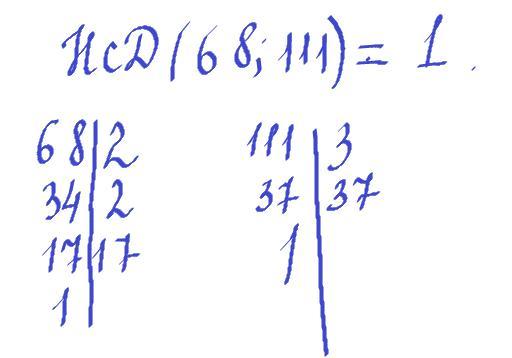 НСД(68; 111) = 1.
68 | 2
34 | 2
17 | 17
1 |
111 | 3
37 | 37
1 |